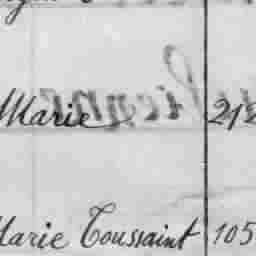 Marie 212
Marie Toussaint 105